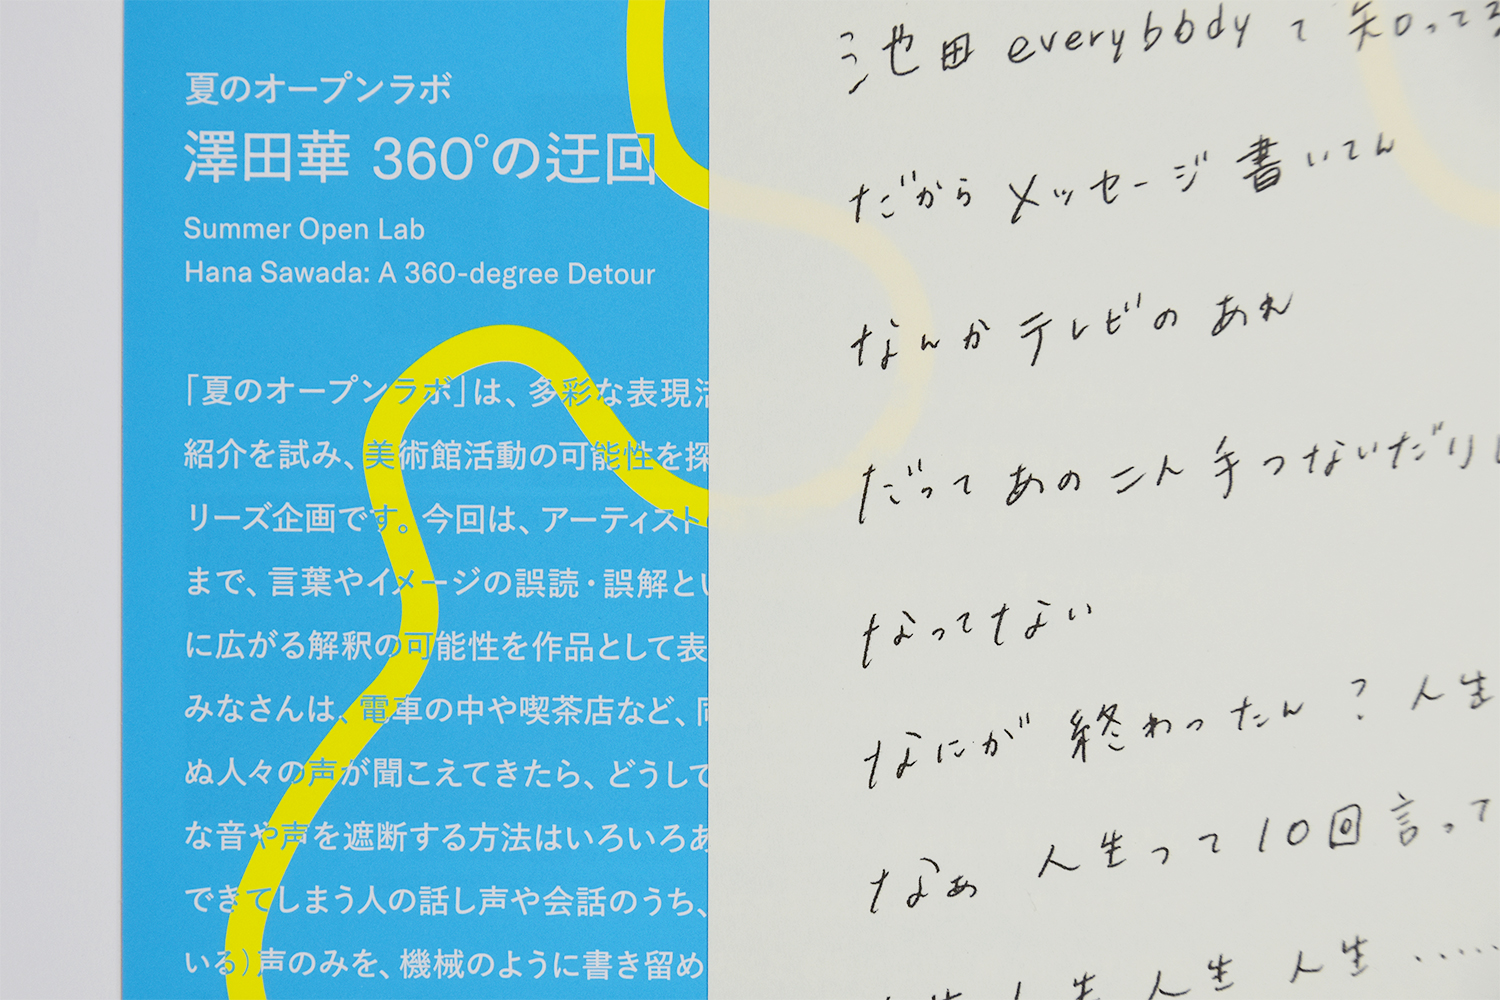 夏のオープンラボ
澤田華 360°の迂回
Summer Open Lab
Hana Sawada: A 360-degree Detour
「夏のオープンラボ」は、多彩な表現活
紹介を試み、美術館活動の可能性を探
リーズ企画です。今回は、アーティスト
まで、言葉やイメージの誤読・誤解とい
に広がる解釈の可能性を作品として表
みなさんは、電車の中や喫茶店など、同
ぬ人々の声が聞こえてきたら、どうして
な音や声を遮断する方法はいろいろあ
できてしまう人の話し声や会話のうち、
いる)声のみを、機械のように書き留め
池田 everybody て 知ってる
だから メッセージ 書いてん
なんか テレビの あれ
だって あの 二人 手つないだりし
なってない
なにが 終わったん ? 人生
なぁ 人生って 10回 言って
人生 人生 人生 人生 ……